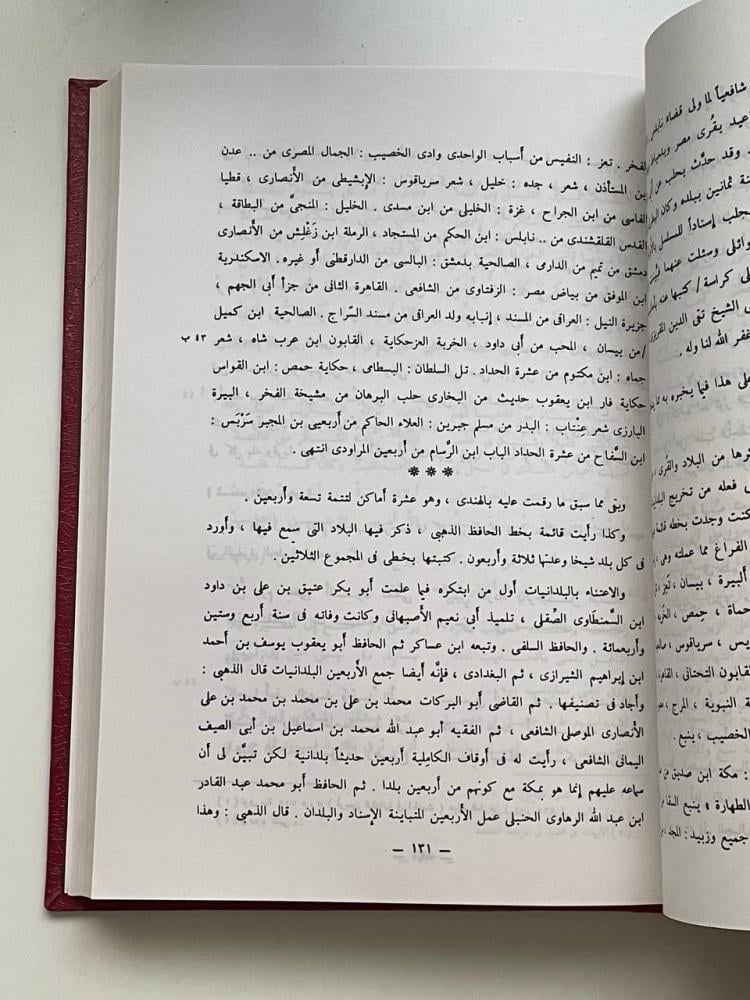 لفخر . تعز : النفيس من أسباب الواحدى وادى الخصيب : الجمال المصرى من .. عدن
بن المستأذن ، شعر ، جده : خليل ، شعر سرياقوس : الإبشيطى من الأنصارى ، قطيا
الفاسى من ابن الجراح ، غزة : الخليلى من ابن مسدى . الخليل : المنجىّ من البطاقة ،
القدس القلقشندى من .. نابلس : ابن الحكم من المستجاد ، الرملة ابن زَغْلِش من الأنصارى
دمشق من تميم من الدارمى ، الصالحية بدمشق : البالسى من الدارقطنى أو غيره . الاسكندرية
ابن الموفق من بياض مصر : الزفتاوى من الشافعى . القاهرة الثانى من جزأ أبى الجهم ،
جزيرة النيل : العراقى من المسند ، إنبابه ولد العراقى من مسند السّراج . الصالحية ابن كميل
/من بيسان ، المحب من أبى داود ، الخربة العزحكاية ، القابون ابن عرب شاه ، شعر ٤٣ ب
حماه : ابن مكتوم من عشرة الحداد . تل السلطان : البسطامى ، حكاية حمص : ابن القواس
حكاية فار ابن يعقوب حديث من البخارى حلب البرهان من مشيخة الفخر ، البيرة
البارزى شعر عِنْتاب : البدر من مسلم جبرين : العلاء الحاكم من أربعينى بن المجبر سَرْبَس :
ابن السَّفاح من عشرة الحداد الباب ابن الرَّسام من أربعين المراودى انتهى .
***
وبقى مما سبق ما رقمت عليه بالهندى ، وهو عشرة أماكن لتتمة تسعة وأربعين .
وكذا رأيت قائمة بخط الحافظ الذهبى ، ذكر فيها البلاد التى سمع فيها ، وأورد
فى كل بلد شيخا وعدتها ثلاثة وأربعون . كتبتها بخطى فى المجموع الثلاثين .
والاعتناء بالبلدانيات أول من ابتكره فيما علمت أبو بكر عتيق بن على بن داود
ابن السَّمنطَاوى الصِّقلى ، تلميذ أبى نعيم الأصبهانى وكانت وفاته فى سنة أربع وستين
وأربعمائة . والحافظ السلفى . وتبعه ابن عساكر ثم الحافظ أبو يعقوب يوسف بن أحمد
ابن إبراهيم الشيرازى ، ثم البغدادى ، فإنَّه أيضا جمع الأربعين البلدانيات قال الذهبى :
وأجاد فى تصنيفها . ثم القاضى أبو البركات محمد بن على بن محمد بن محمد بن على
الأنصارى الموصلى الشافعى ، ثم الفقيه أبو عبد الله محمد بن اسماعيل بن أبى الصيف
اليمانى الشافعى ، رأيت له فى أوقاف الكاملية أربعين حديثاً بلدانية لكن تبيَّن لى أن
سماعه عليهم إنما هو بمكة مع كونهم من أربعين بلدا . ثم الحافظ أبو محمد عبد القادر
ابن عبد الله الرهاوى الحنبلى عمل الأربعين المتباينة الإسناد والبلدان . قال الذهبى : وهذا
— ١٣١ —
شافعياً لما ولى قضاء نابلس
بقُرى مصر
وقد حدَّث بحلب من
ثمانين ببلده وكان
إسناداً للمسلسل
وسئلت عنهما
كراسة / كتبها عنه
الشيخ تقى الدين
غفر الله لنا وله .
على هذا فيما يخبره به
من البلاد والقُرى ،
فعله من تخريج
كنت وجدت بخطه
الفراغ مما عملته وهى
ألبيرة ، بيسان ،
حماة ، حِمص ،
سرياقوس ،
القابون التحتانى ،
النبوية ، المرج ،
الخصيب ، ينبع .
: مكة ابن صديق من
الطهارة » ينبع
جميع وزبيد : المجد ،